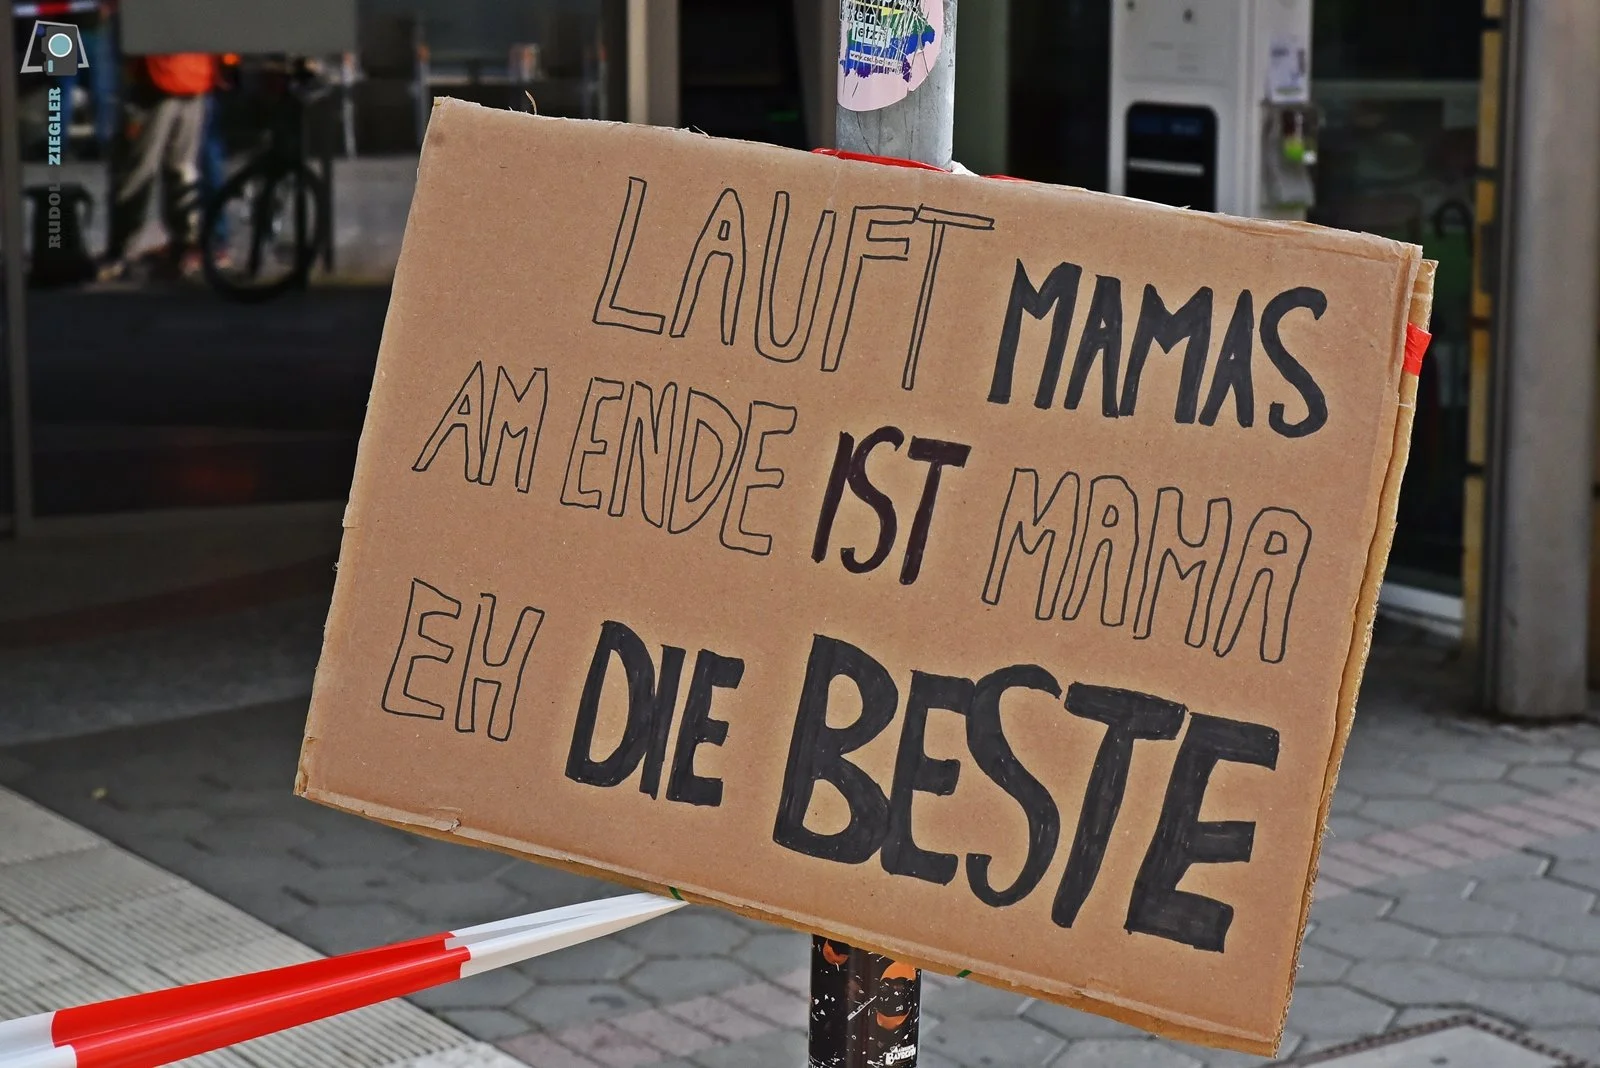 LAUFT MAMAS
AM ENDE IST MAMA
EH DIE BESTE
RUDOLF ZIEGLER
jetzt